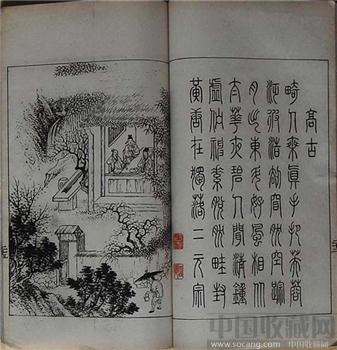 高古
畸人乘真手把芙蓉
汎彼浩劫窅然空蹤
月出東斗好風相從
太華夜碧人聞清鐘
虛佇神素脫然畦封
黃唐在獨落二玄宗
中国收藏网
www.socang.com